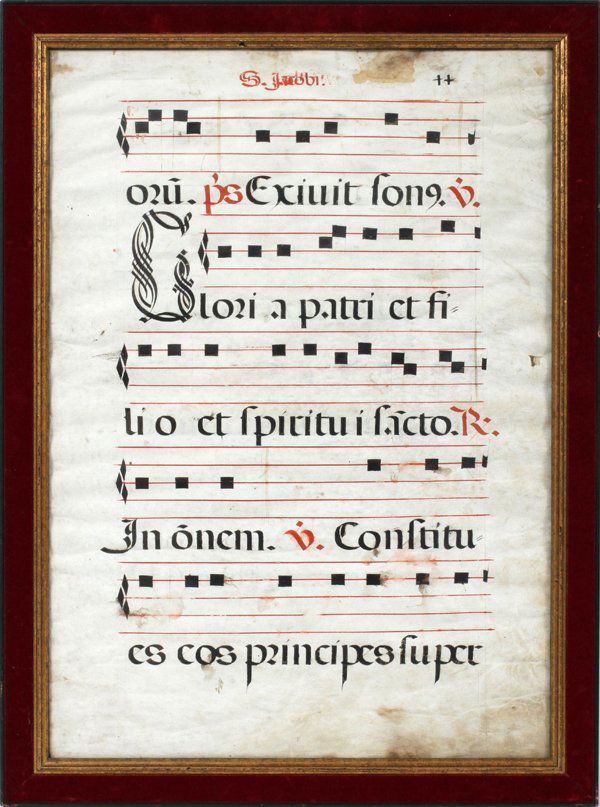 S. Jacobi. ++
orũ. p̃s Exiuit son9. ℣.
Glori a patri et fi-
li o et spiritu i sãcto. ℟.
In õnem. ℣. Constitu-
es eos principes super